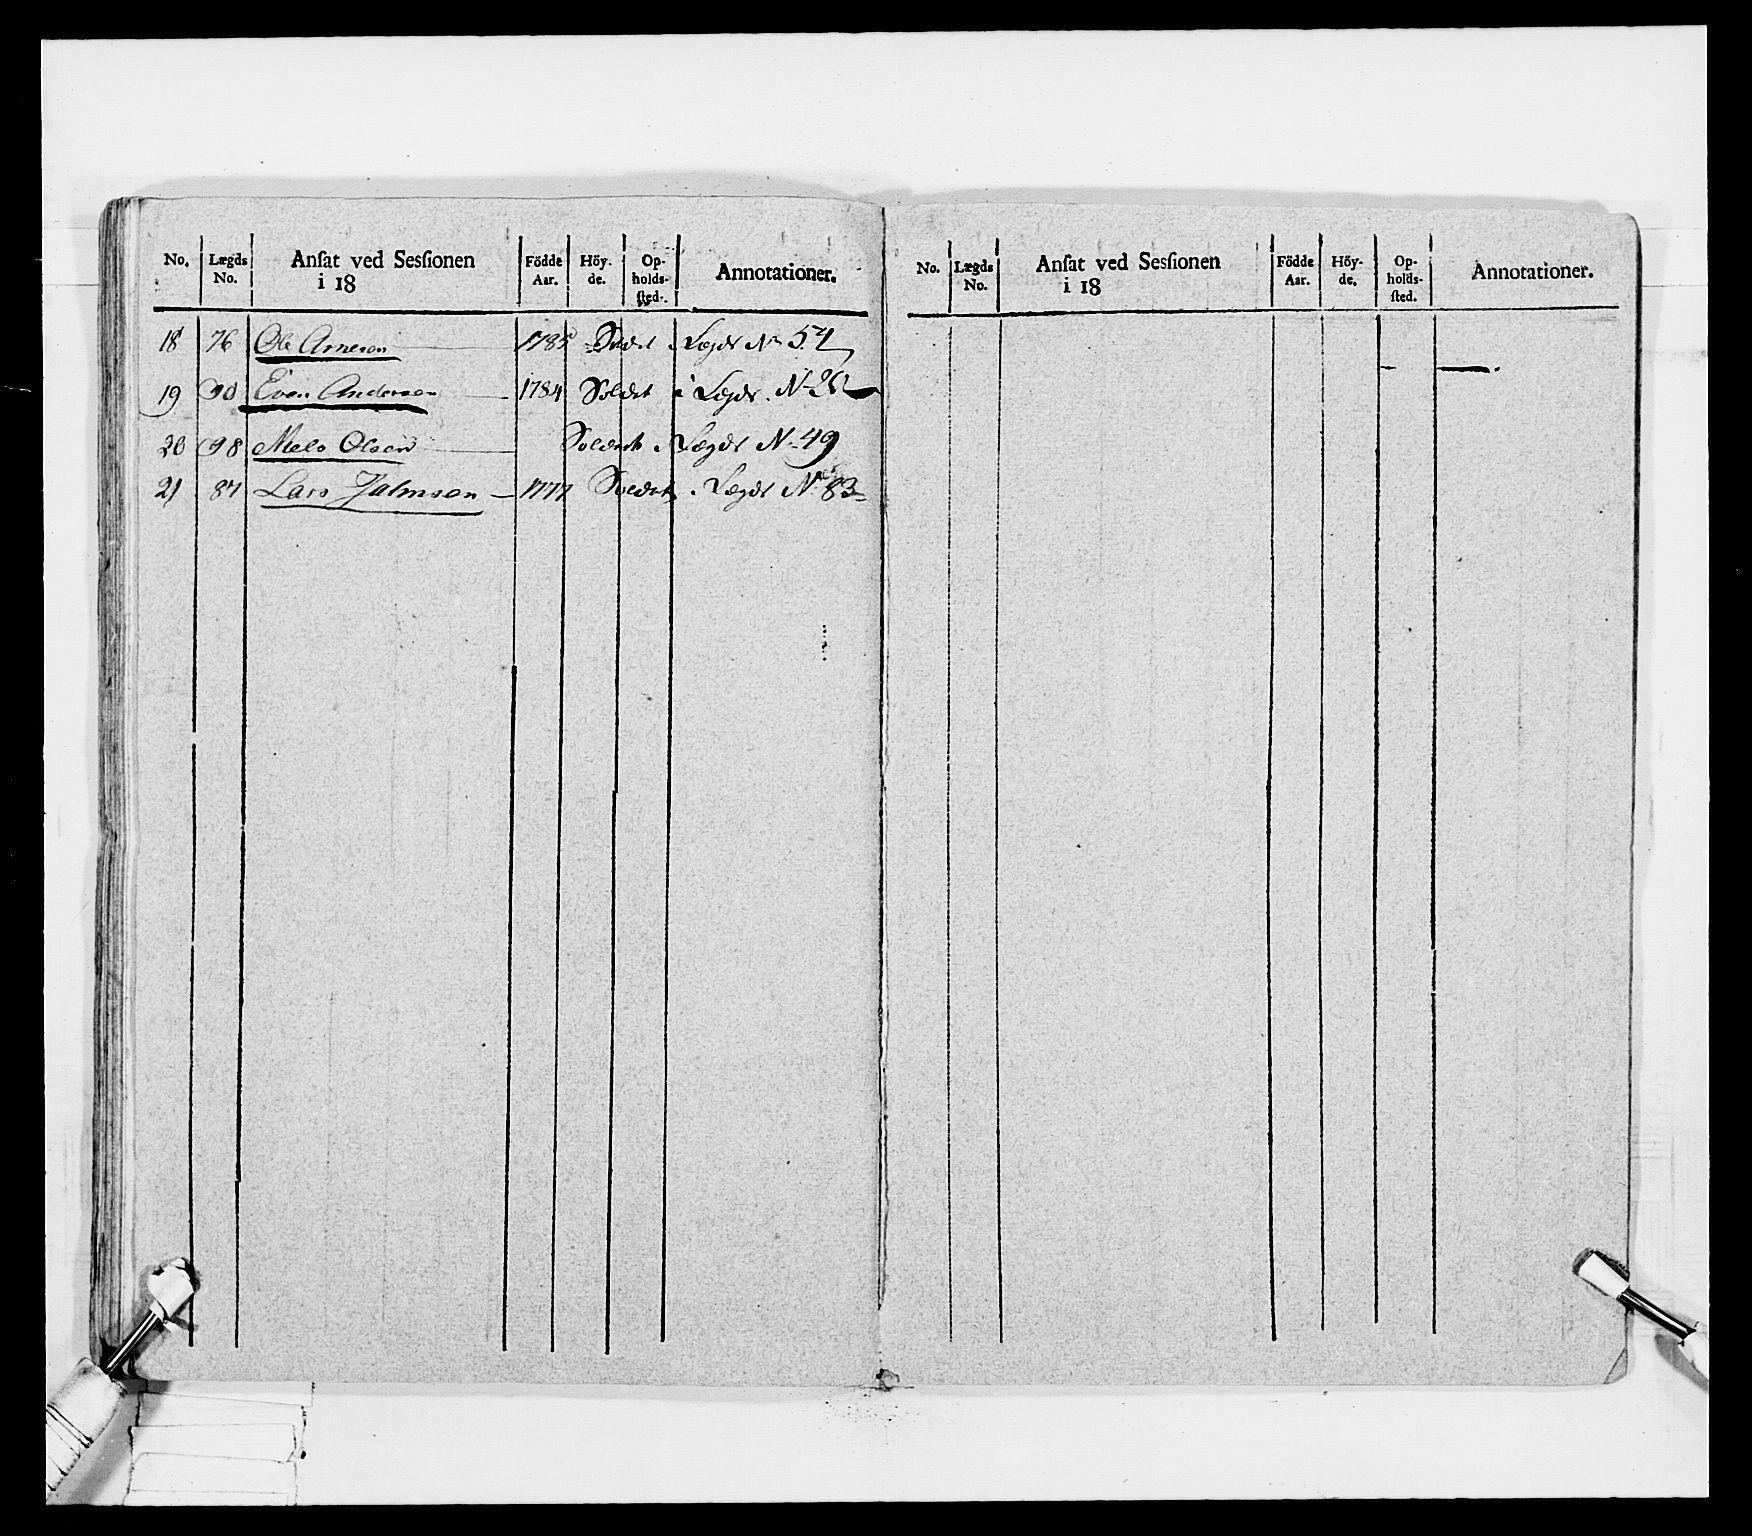 No. Lægds No. Ansat ved Sessionen i 18 Födde Aar. Höyde. Opholdssted. Annotationer.
18 76 Ole Arneson 1785 Soldat i Lægds No 54
19 90 Even Anderson 1784 Soldat i Lægds No
20 98 Niels Olsen Soldat i Lægds No 49
21 87 Lars 1777 Soldat i Lægds No 83
No. Lægds No. Ansat ved Sessionen i 18 Födde Aar. Höyde. Opholdssted. Annotationer.